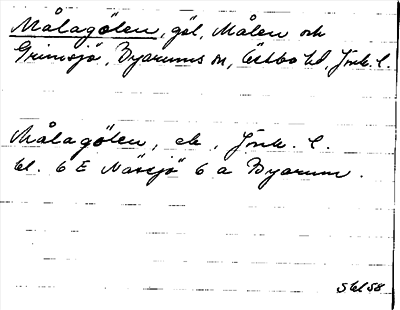 Målagölen, göl, Målen och
Grimsjö, Byarums sn, Östbo hd, Jönk. l.
Målagölen, ek, Jönk. l.
bl. 6 E Nässjö 6 a Byarum.